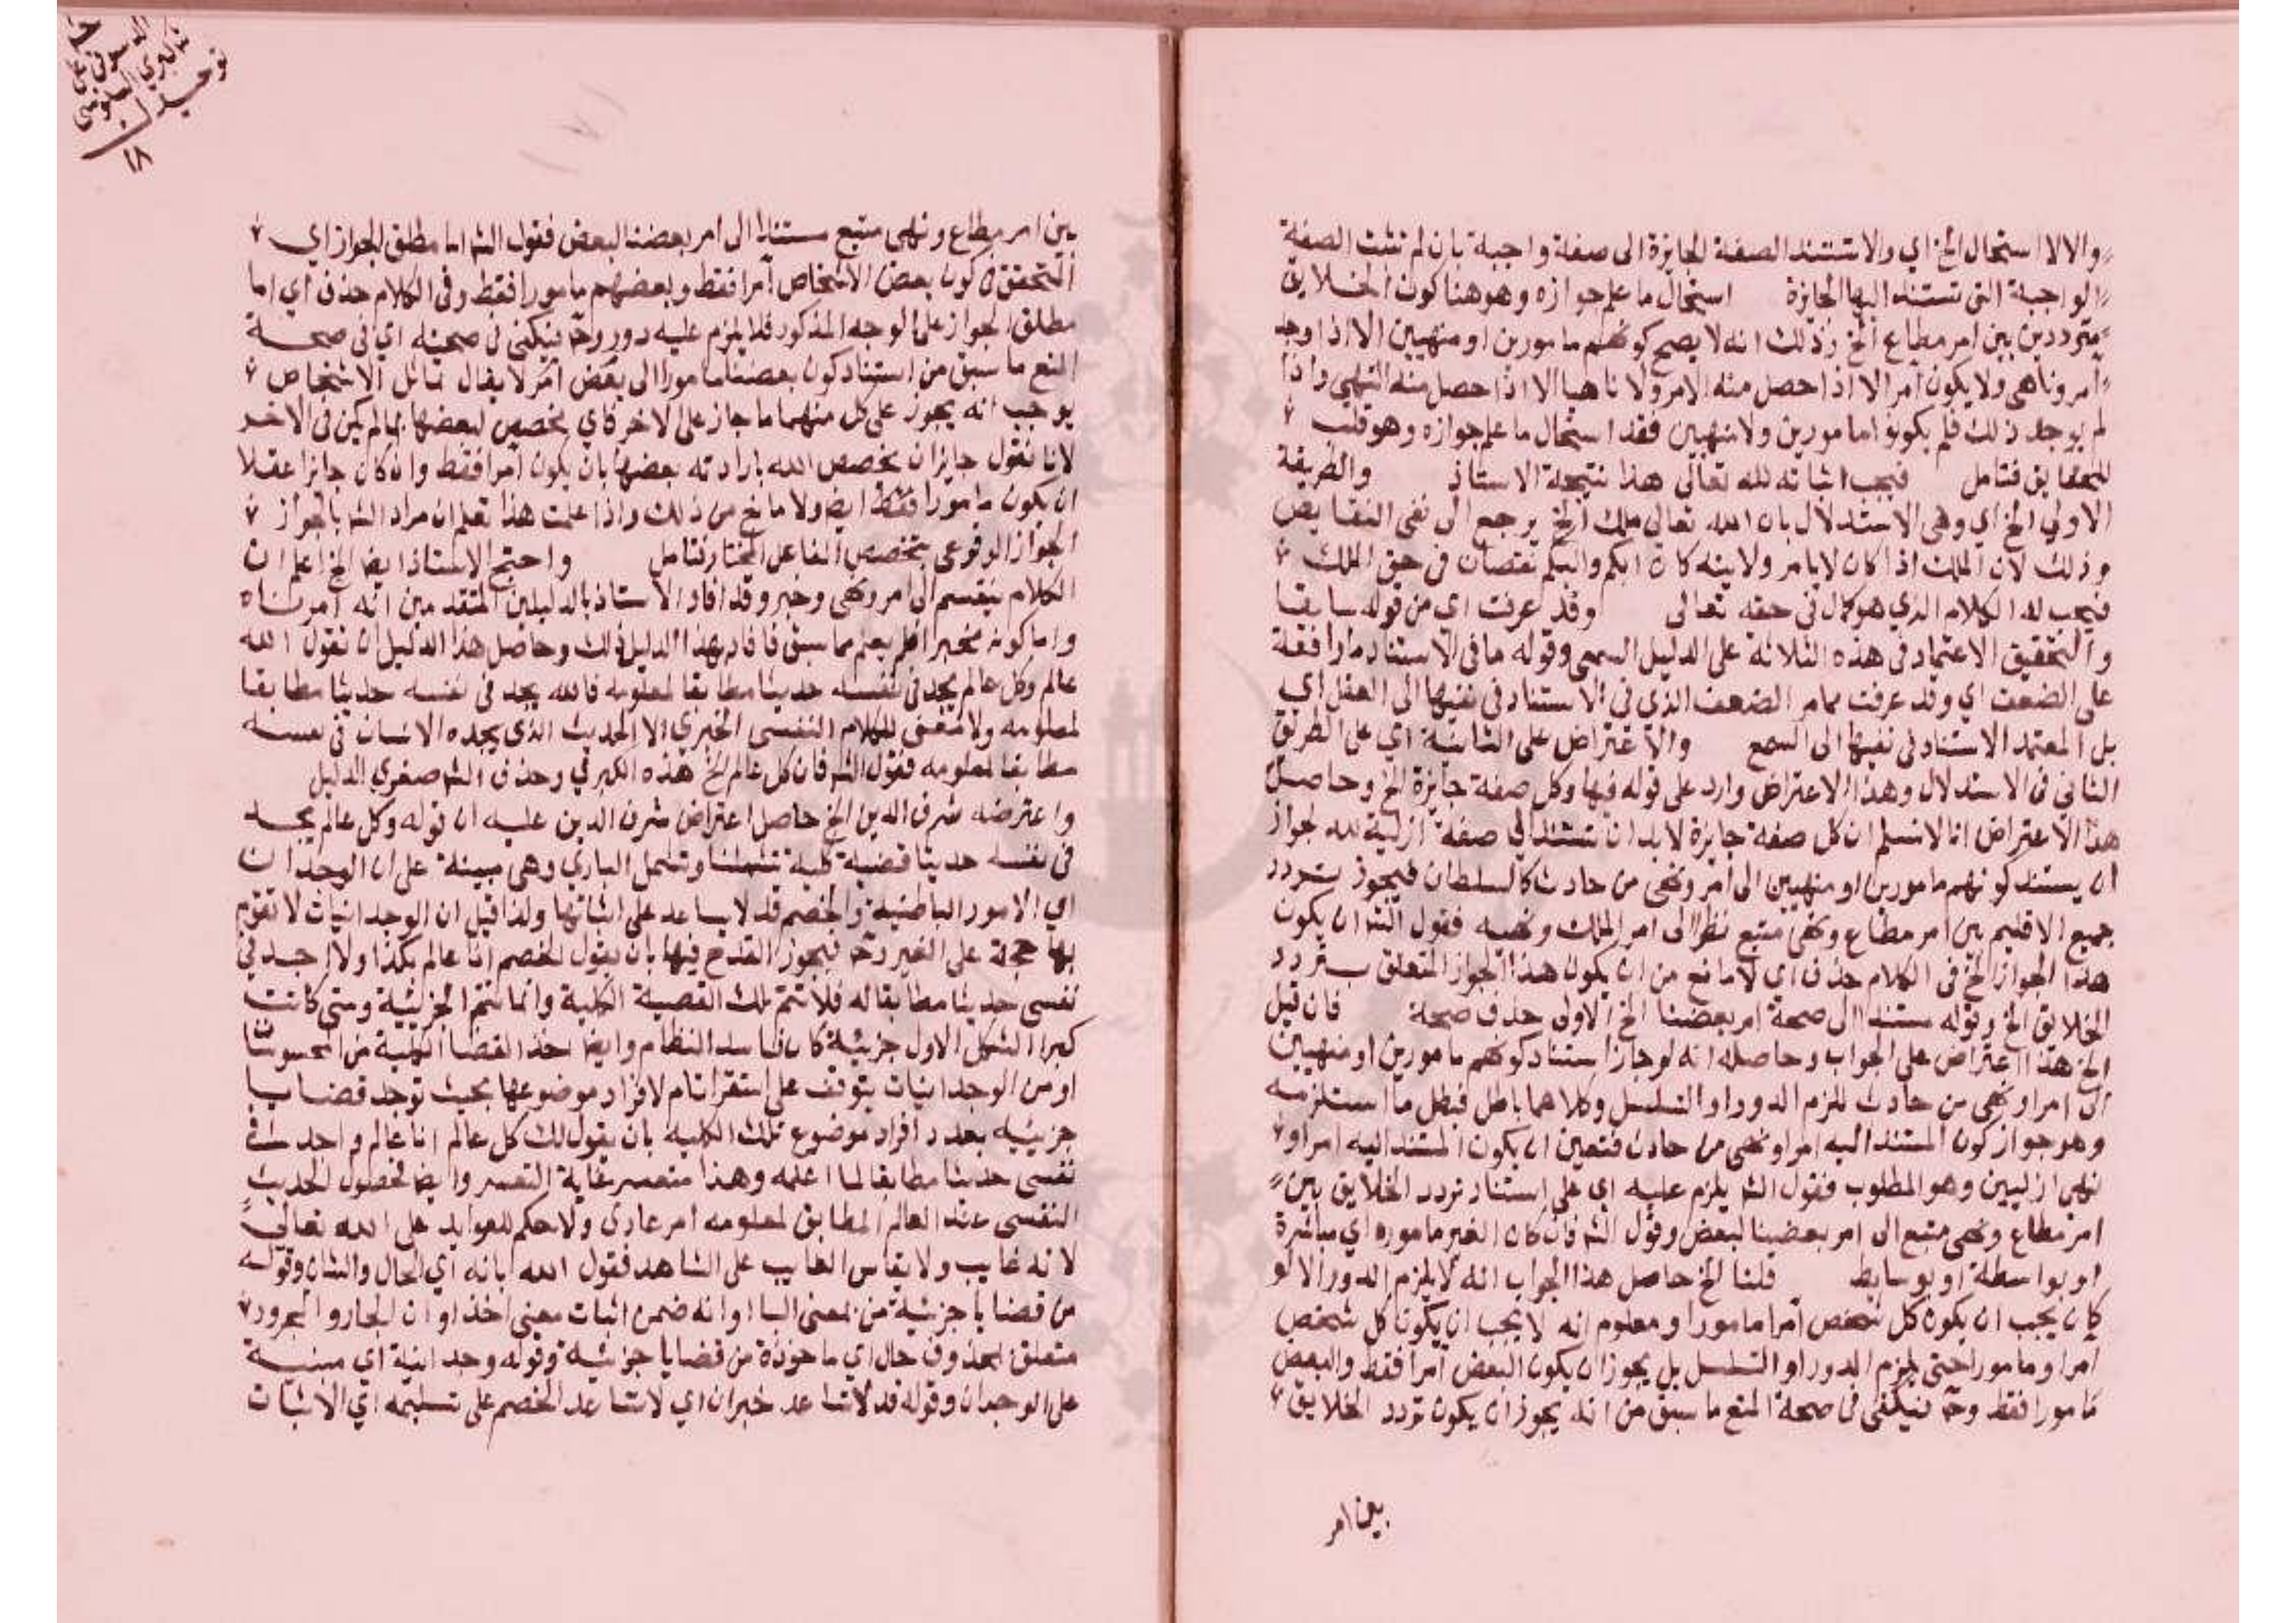 والا لاستحال الخ اي والا تستند الصفة الجايزة الى صفة واجبة بان لم تثبت الصفة
الواجبة التي تستند اليها الجايزة استحال ما علم جوازه وهو هنا كون الخلايق
مترددين بين امر مطاع الخ وذلك انه لا يصح كونهم مامورين او منهيين الا اذا وجد
آمر وناهي ولا يكون آمرا الا اذا حصل منه الامر ولا ناهيا الا اذا حصل منه النهي واذا
لم يوجد ذلك فلم يكونوا مامورين ولا منهيين فقد استحال ما علم جوازه وهو قلب
للحقايق فتامل فيجب اثباته لله تعالى هذا نتيجة الاستاذ والطريقة
الاولي الخ اي وهي الاستدلال بان الله تعالى ملك الخ يرجع الى نفى النقايص
وذلك لان الملك اذا كان لا يامر ولا ينه كان ابكم والبكم نقصان في حق الملك
فيجب له الكلام الذي هو كمال في حقه تعالى وقد عرفت اي من قوله سابقا
والتحقيق الاعتماد في هذه الثلاثة على الدليل السمعي وقوله ما في الاستناد
على الضعف اي وقد عرفت مما مر الضعف الذي في الاستناد في نفيها الى العقل اي
بل المعتمد الاستناد في نفيها الى السمع والاعتراض على الثانية اي على الطريق
الثاني في الاستدلال وهذا الاعتراض وارد على قوله فيها وكل صفة جايزة الخ وحاصل
هذا الاعتراض انا لا نسلم ان كل صفة جايزة لا بد ان تستند الي صفة ازلية لله لجواز
ان يستند كونهم مامورين او منهيين الى امر ونهى من حادث كالسلطان فيجوز تردد
جميع الاقليم بين امر مطاع ونهى متبع نظرا الى امر الملك ونهيه فقول الش ان يكون
هذا الجواز الخ في الكلام حذف اي لا مانع من ان يكون هذا الجواز المتعلق بتردد
الخلايق الخ وقوله مستندا الى صحة امر بعضنا الخ الاولى حذف صحة فان قيل
الخ هذا اعتراض على الجواب وحاصله انه لو جاز استناد كونهم مامورين او منهيين
الى امر او نهى من حادث للزم الدور او التسلسل وكلاهما باطل فبطل ما استلزمه
وهو جواز كون المستند اليه امرا او نهى من حادث فتعين ان يكون المستند اليه امرا او
نهى ازليين وهو المطلوب فقول الش يلزم عليه اي على استناد تردد الخلايق بين
امر مطاع ونهى متبع الى امر بعضنا لبعض وقول الش فان كان الغير ماموره اي مباشرة
او بواسطة او بوسايط قلنا الخ حاصل هذا الجواب انه لا يلزم الدور الا لو
كان يجب ان يكون كل شخص آمرا مامورا ومعلوم انه لا يجب ان يكون كل شخص
امرا ومامورا حتى يلزم الدور او التسلسل بل يجوز ان يكون البعض آمرا فقط والبعض
مامورا فقط وح فيكفى في صحة المنع ما سبق من انه يجوز ان يكون تردد الخلايق
بين امر
توحيد
١٨
بين امر مطاع ونهى متبع مستندا الى امر بعضنا لبعض فقول الش اما مطلق الجواز اي
المتحقق في كون بعض الاشخاص آمرا فقط وبعضهم مامورا فقط وفي الكلام حذف اي اما
مطلق الجواز على الوجه المذكور فلا يلزم عليه دور وح فيكفى في صحته اي في صحة
المنع ما سبق من استناد كون بعضنا مامورا الى بعض آمر لا يقال تماثل الاشخاص
يوجب انه يجوز على كل منهما ما جاز على الاخر فاي مخصص لبعضها بما لم يكن في الاخر
لانا نقول جايز ان يخصص الله بارادته بعضها بان يكون آمرا فقط وان كان جايزا عقلا
ان يكون مامورا فقط ايض ولا مانع من ذلك واذا علمت هذا تعلم ان مراد الش بالجواز
الجواز الوقوعي بتخصيص الفاعل المختار فتامل واحتج الاستاذ ايضا الخ اعلم ان
الكلام ينقسم الى امر ونهى وخبر وقد افاد الاستاذ بالدليلين المتقدمين انه آمر ناه
واما كونه مخبرا فلم يعلم مما سبق فافاد بهذا الدليل ذلك وحاصل هذا الدليل ان نقول الله
عالم وكل عالم يجد في نفسه حديثا مطابقا لمعلومه فالله يجد في نفسه حديثا مطابقا
لمعلومه ولا معنى للكلام النفسى الخبري الا الحديث الذي يجده الانسان في نفسه
مطابقا لمعلومه فقول الش فان كل عالم الخ هذه الكبرى وحذف الش صغرى الدليل
واعترضه شرف الدين الخ حاصل اعتراض شرف الدين عليه ان قوله وكل عالم يجد
في نفسه حديثا قضية كلية تشملنا وتشمل الباري وهي مبينة على ان الوجدان
اي الامور الباطنية والخصم قد لا يساعد على اثباتها ولذا قيل ان الوجدانيات لا تقوم
بها حجة على الغير وح فيجوز القدح فيها بان يقول الخصم انا عالم بكذا ولا اجد في
نفسى حديثا مطابقا له فلا تتم تلك القضية الكلية وانما تتم الجزئية ومتى كانت
كبرا الشكل الاول جزئية كان فاسد النظام وايض اخذ القضايا الكلية من المحسوسات
او من الوجدانيات يتوقف على استقرا تام لافراد موضوعها بحيث توجد قضايا
جزئية بعدد افراد موضوع تلك الكلية بان يقول لك كل عالم انا عالم واجد في
نفسى حديثا مطابقا لما اعلمه وهذا متعسر غاية التعسر وايض فحصول الحديث
النفسى عند العالم المطابق لمعلومه امر عادي ولا حكم للعوايد على الله تعالى
لانه غايب ولا يقاس الغايب على الشاهد فقول الله بانه اي الحال والشان وقوله
من قضايا جزئية من بمعنى الباا وانه ضمن اثبات معنى اخذ او ان الجار والمجرور
متعلق بمحذوف حال اي ماخوذة من قضايا جزئية وقوله وجدانية اي مبنية
على الوجدان وقوله قد لا تساعد خبر ان اي لا تساعد الخصم على تسليمه اي الاثبات